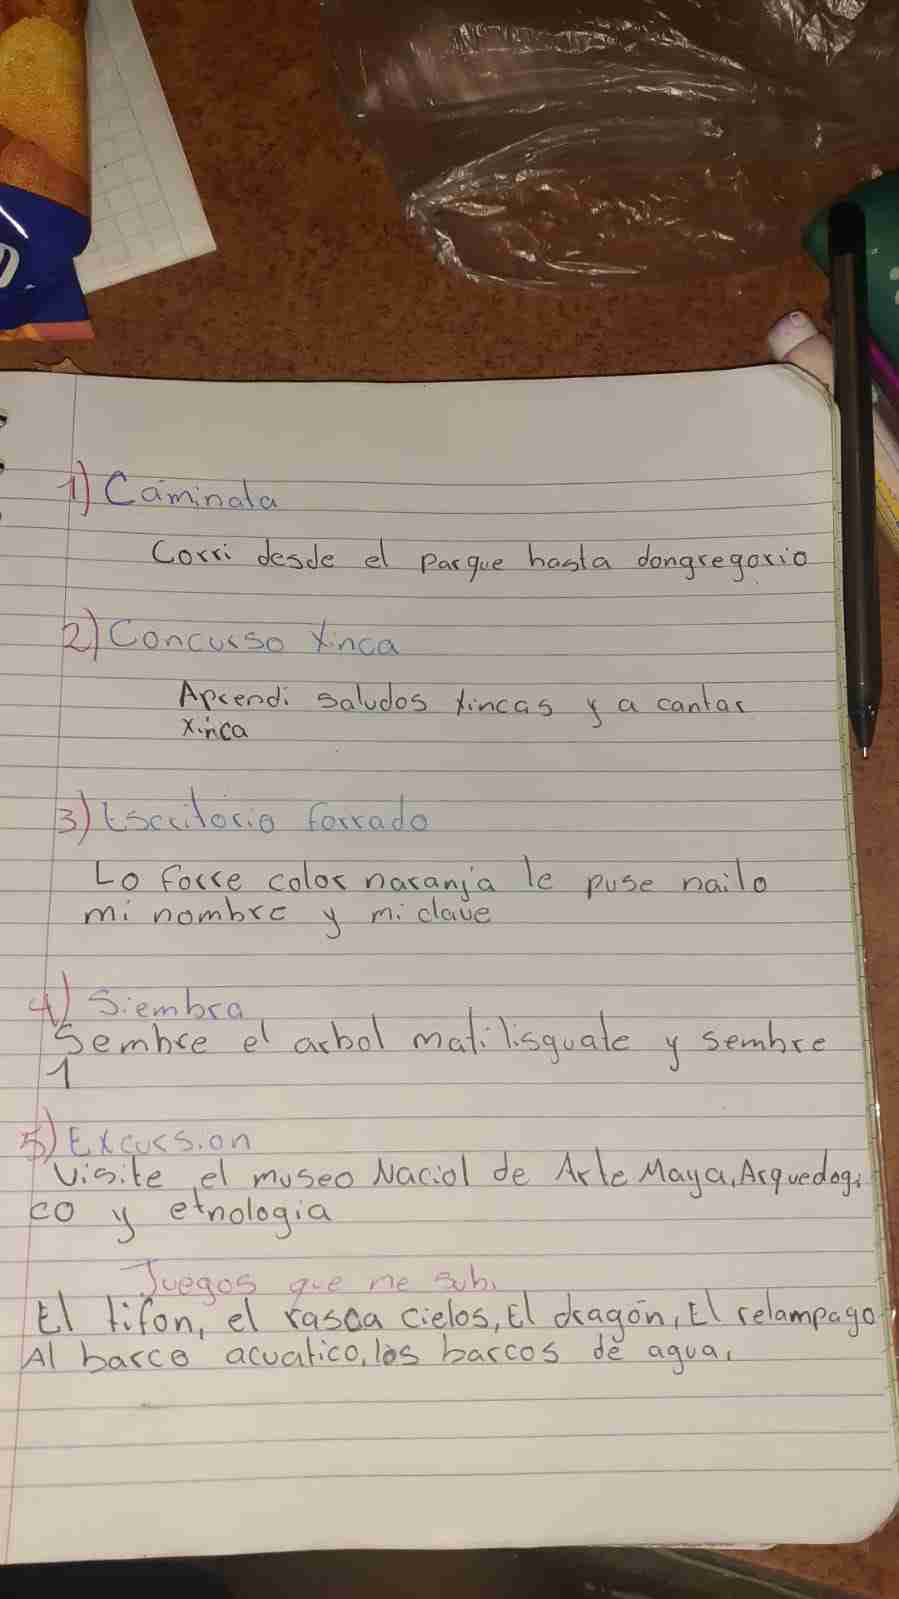 1) Caminata
Corri desde el parque hasta dongregorio
2) Concurso Xinca
Aprendi saludos xincas y a cantar
xinca
3) Escritorio forrado
Lo forre color naranja le puse nailo
mi nombre y mi clave
4) Siembra
Sembre el arbol matilisguate y sembre
1
5) Excursion
Visite el museo Naciol de Arte Maya, Arqueologi
co y etnologia
Juegos que me subi
El tifon, el rasca cielos, El dragón, El relampago
Al barco acuatico, los barcos de agua.